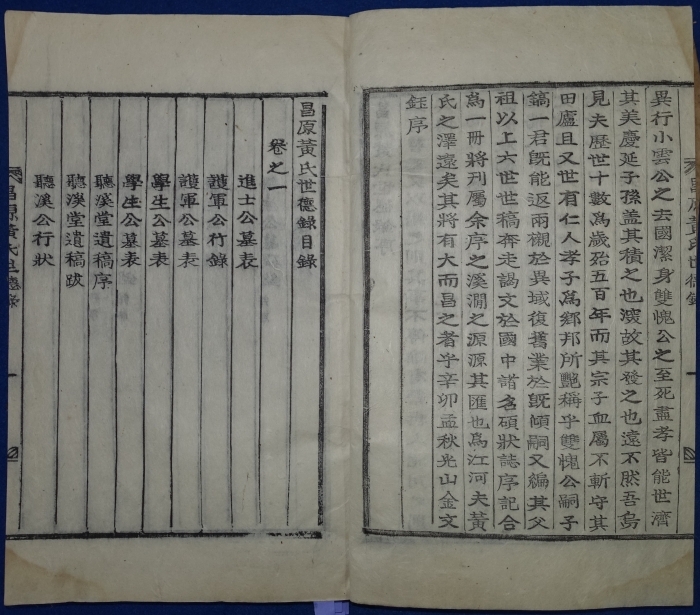 異行小雲公之去國潔身雙愧公之至死盡孝皆能世濟
其美慶延子孫盖其積之也深故其發之也遠不然吾烏
見夫歷世十數爲歲殆五百年而其宗子血屬不斬守其
田廬且又世有仁人孝子爲鄕邦所艶稱乎雙愧公嗣子
鎬一君旣能返兩櫬於異域復舊業於旣傾嗣又編其父
祖以上六世世稿奔走謁文於國中諸名碩狀誌序記合
爲一冊將刊屬余序之溪澗之源源其匯也爲江河夫黃
氏之澤遠矣其將有大而昌之者乎辛卯孟秋光山金文
鈺序
昌原黃氏世德錄
一
昌原黃氏世德錄目錄
卷之一
進士公墓表
護軍公行錄
護軍公墓表
學生公墓表
學生公墓表
聽溪堂遺稿序
聽溪堂遺稿跋
聽溪公行狀
昌原黃氏世德錄
一